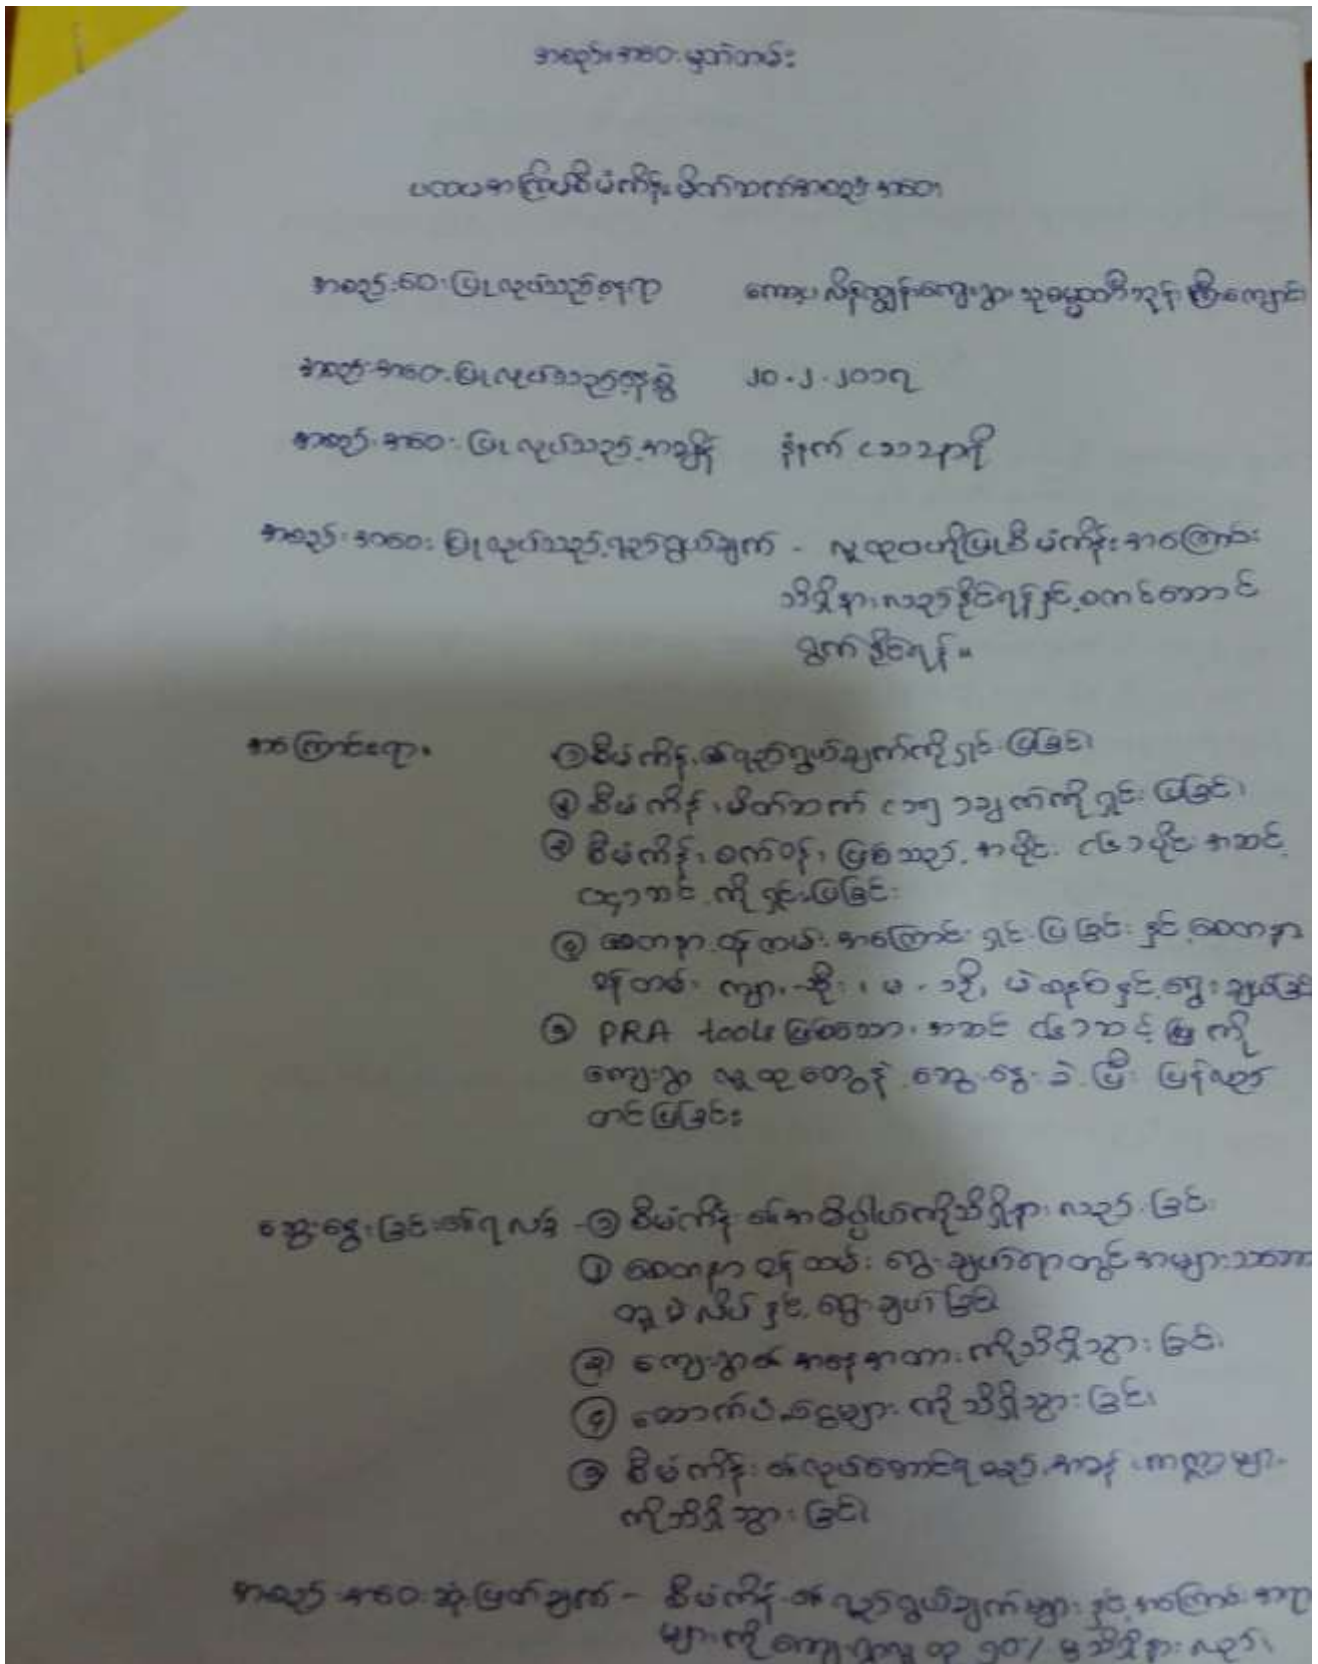 အစည်းအဝေး မှတ်တမ်း
ပထမအကြိမ်စီမံကိန်းမိတ်ဆက်အစည်းအဝေး
အစည်းဝေးပြုလုပ်သည့်နေရာ ကျွန်းကျေးရွာ ဘုန်းကြီးကျောင်း
အစည်းအဝေးပြုလုပ်သည့်နေ့ရွဲ ၂၀.၂.၂၀၁၇
အစည်းအဝေးပြုလုပ်သည့်အချိန် နံနက်
အစည်းအဝေးပြုလုပ်သည့်ရည်ရွယ်ချက် - လူထုဗဟိုပြုစီမံကိန်းအကြောင်း
သိရှိနားလည်နိုင်ရန်နှင့်
ရွက်နိုင်ရန်။
အကြောင်းအရာ။ ① စီမံကိန်း၏ရည်ရွယ်ချက်ကိုရှင်းပြခြင်း၊
② စီမံကိန်းမိတ်ဆက် (၁၅) ချက်ကိုရှင်းပြခြင်း၊
③ စီမံကိန်းစက်ဝန်းဖြစ်သည့်အပိုင်း (၆) ပိုင်းအဆင့်
ဆင့်ကိုရှင်းပြခြင်း
④ စေတနာ့ဝန်ထမ်းအကြောင်းရှင်းပြခြင်းနှင့်စေတနာ့
ဝန်ထမ်း ကျား - ဦး၊ မ - ဦး၊ မဲဆန္ဒနှင့်ရွေးချယ်ခြင်း
⑤ PRA tools ဖြစ်သောအဆင့် (၆) ဆင့် ကို
ကျေးရွာလူထုတွေနဲ့ဆွေးနွေးခဲ့ပြီးပြန်လည်
တင်ပြခြင်း
ဆွေးနွေးခြင်း၏ရလဒ် - ① စီမံကိန်း၏အဓိပ္ပါယ်ကိုသိရှိနားလည်ခြင်း
② စေတနာ့ဝန်ထမ်းရွေးချယ်ရာတွင်အများသဘော
တူ နှင့်ရွေးချယ်ခြင်း၊
③ ကျေးရွာ၏အနေအထားကိုသိရှိသွားခြင်း၊
④ ထောက်ပံ့ငွေများကိုသိရှိသွားခြင်း၊
⑤ စီမံကိန်း၏လုပ်ဆောင်ရမည့်အခန်းကဏ္ဍများ
ကိုသိရှိသွားခြင်း၊
အစည်းအဝေးဆုံးဖြတ်ချက် - စီမံကိန်း၏ရည်ရွယ်ချက်များနှင့်အကြောင်းအရာ
များကိုကျေးရွာလူထု ၇၀% မှသိရှိနားလည်၊